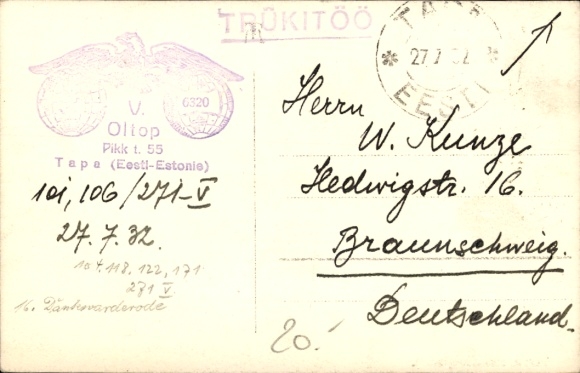 TRÜKITÖÖ
TAPA
27.7.32
EESTI
6320
V.
Oltop
Pikk t. 55
Tapa (Eesti-Estonie)
101, 106/271-V
27. 7. 32.
104. 118. 122, 171
271 V
Herrn
W. Kunze
Hedwigstr. 16.
Braunschweig.
Deutschland.
20.-